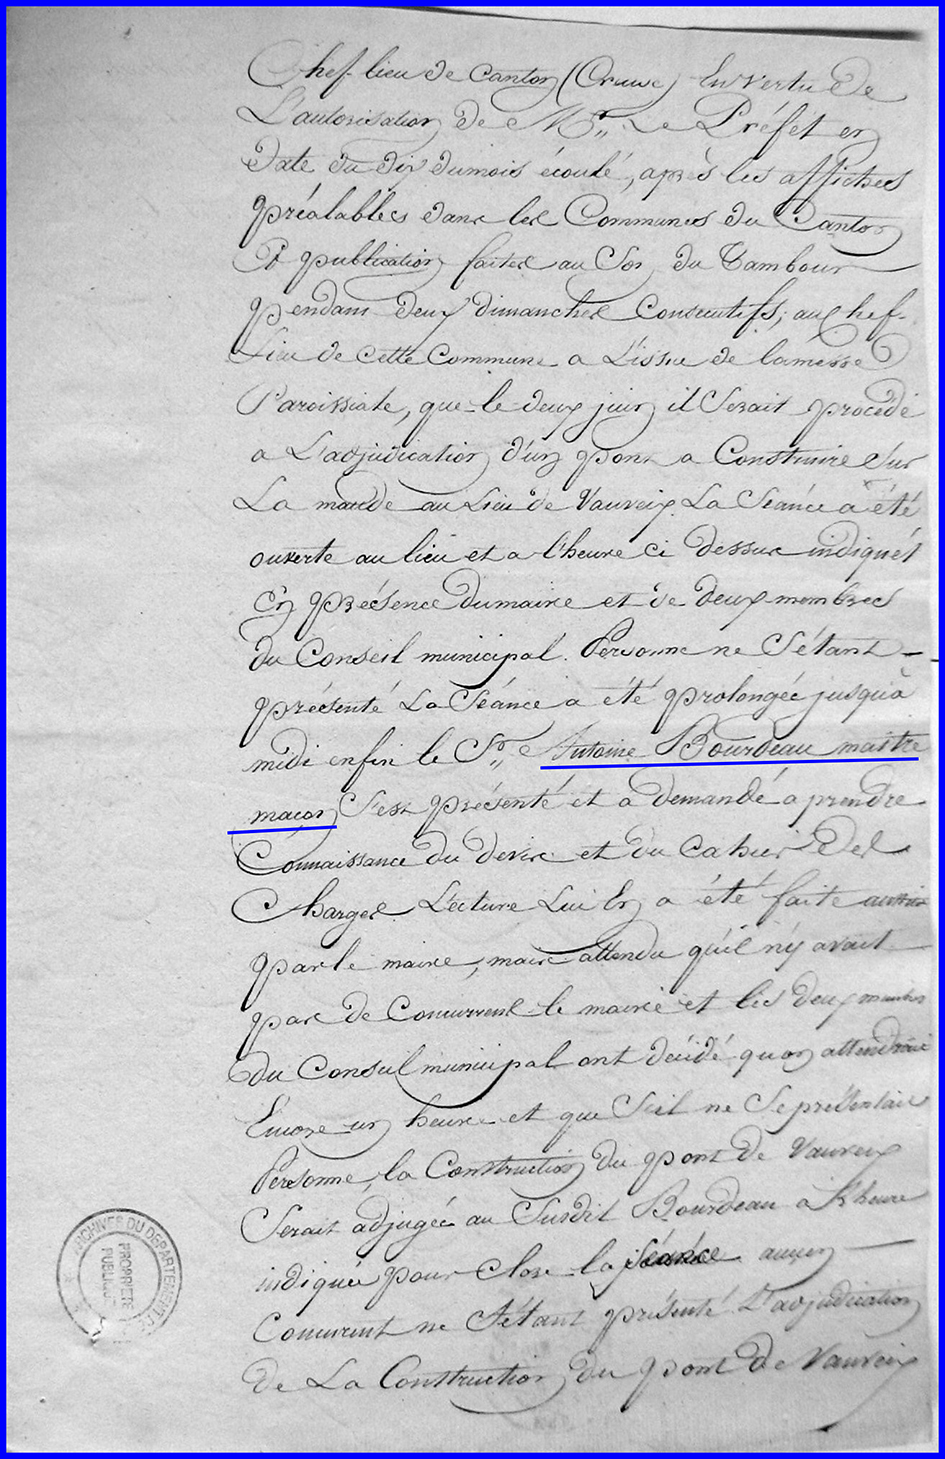 Chef-lieu de canton (Creuse) En vertu de
L'autorisation de Mr. Le Préfet en
date du dix du mois écoulé, après les affiches
préalables dans les Communes du Canton
Et publication faites au Son du Tambour
pendant deux dimanches Consecutifs, au Chef-
Lieu de cette Commune a L'issue de la messe
Paroissiale, que le deux juin il Serait procédé
a L'adjudication d'un pont a Construire Sur
La maude au Lieu de Vauveix. La Séance a été
ouverte au lieu et a l'heure ci dessus indiqués
En présence du maire et de deux membres
du Conseil municipal. Personne ne S'étant
présenté La Séance a été prolongée jusqu'à
midi enfin le Sr. Antoine Bourdeau maitre
maçon S'est présenté et a demandé a prendre
Connaissance du devis et du Cahier Des
Charges Lecture Lui En a été faite
par le maire, mais attendu qu'il n'y avait
pas de Concurrents le maire et les deux membres
du Conseil municipal ont décidé qu'on attendrait
Encore un heure et que S'il ne Se présentait
Personne, la Construction du pont de Vauveix
Serait adjugée au Susdit Bourdeau a l'heure
indiquée pour Clore la Séance aucun
Concurrent ne S'étant présenté L'adjudication
de La Construction du pont de Vauveix
ARCHIVES DU DEPARTEMENT
PROPRIÉTÉ
PUBLIQUE